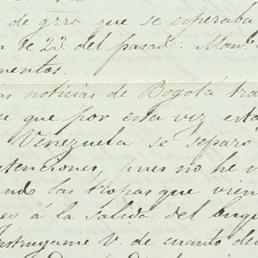 de grra que se esperaba
n de 23. del pasado: Man.
mentos.
as noticias de Bogotá tra
e que por esta vez está
Venezuela se separo
tenciones, pues no he v
ndo las tropas que vien
es á la salida del buq
nstruyame V. de cuanto de